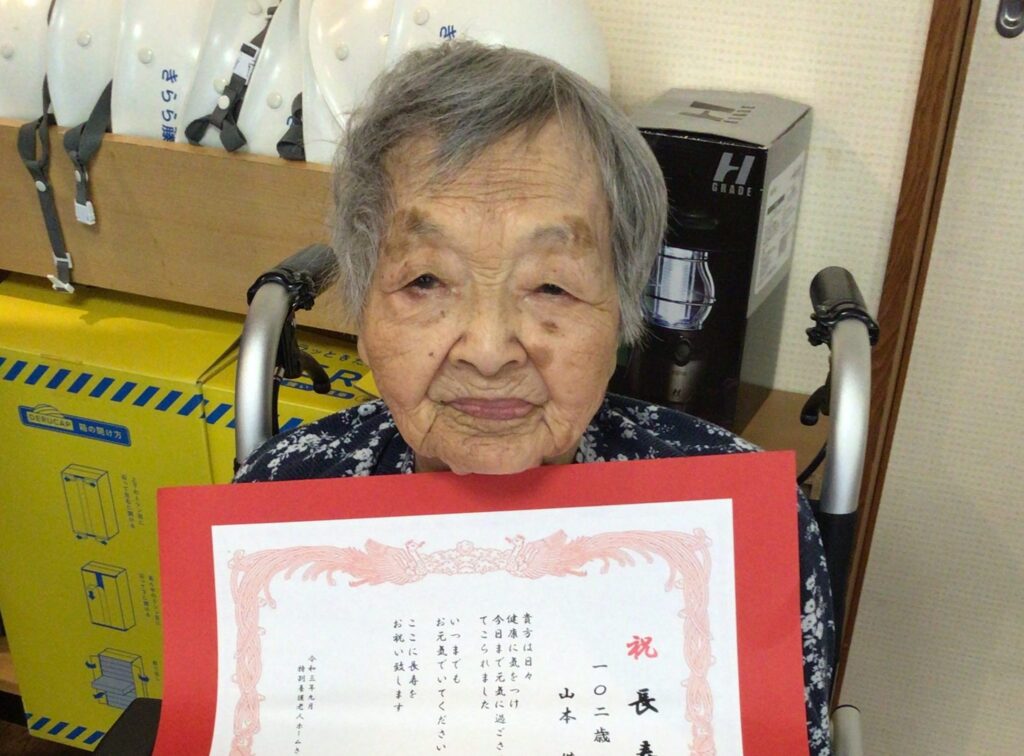 祝 長寿
一〇二歳
山本
貴方は日々
健康に気をつけ
今日まで元気に過ごさ
てこられました
いつまでも
お元気でいてください
ここに長寿を
お祝い致します
令和三年九月
特別養護老人ホームさ
きらら藤
きらら藤
き
H
GRADE
H
GRADE
DERUCAP 箱の開け方